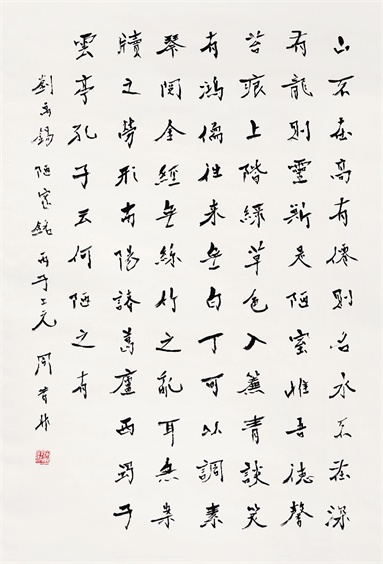 山不在高有僊則名水不在深
有龍則靈斯是陋室惟吾德馨
苔痕上階綠草色入簾青談笑
有鴻儒往來無白丁可以調素
琴閱金經無絲竹之亂耳無案
牘之勞形南陽諸葛廬西蜀子
雲亭孔子云何陋之有
劉禹錫陋室銘丙子上元周昔非